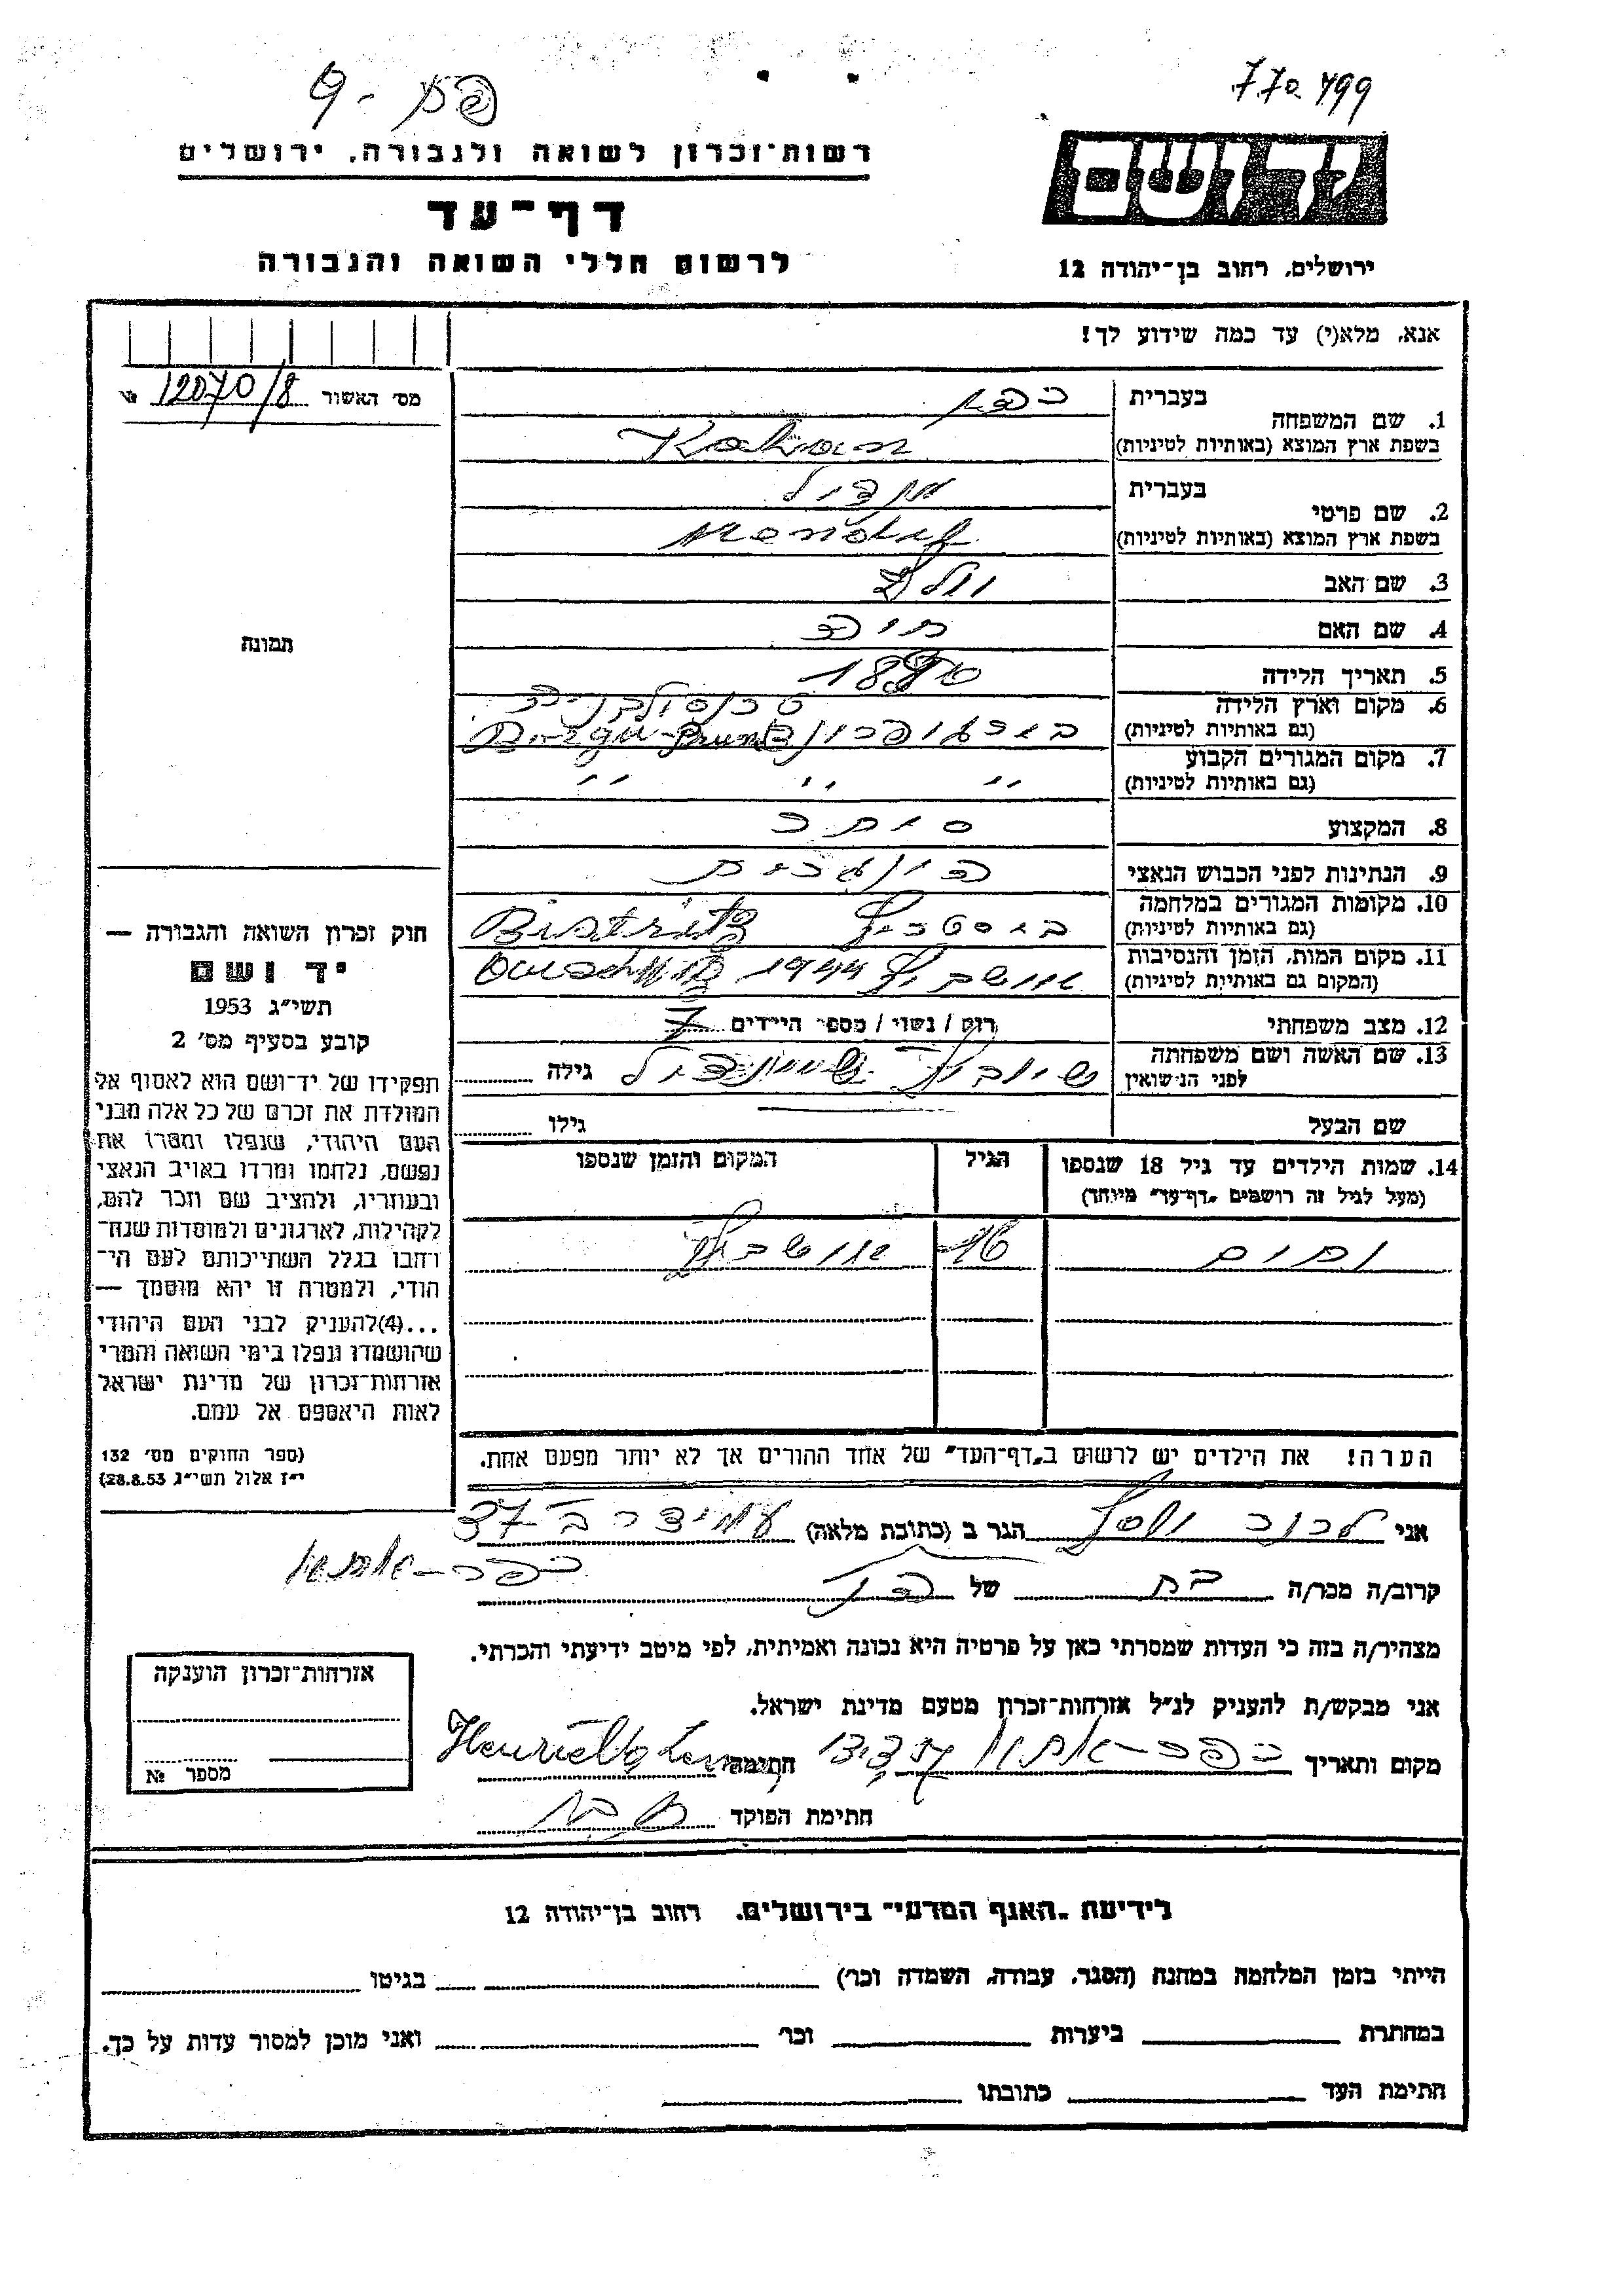 770499
ידושם
ירושלים, רחוב בן־יהודה 12
רשות־זכרון לשואה ולגבורה, ירושלים
דף־עד
לרשום חללי השואה והגבורה
אנא, מלא(י) עד כמה שידוע לך!
מס' האשור 12070/8 №
1. שם המשפחה
בעברית כהן
בשפת ארץ המוצא (באותיות לטיניות) Kahan
2. שם פרטי
בעברית מנדל
בשפת ארץ המוצא (באותיות לטיניות) Mendel
3. שם האב וולף
4. שם האם
5. תאריך הלידה 1890
6. מקום וארץ הלידה
(גם באותיות לטיניות)
7. מקום המגורים הקבוע
(גם באותיות לטיניות) " " "
8. המקצוע סוחר
9. הנתינות לפני הכבוש הנאצי הונגרית
10. מקומות המגורים במלחמה
(גם באותיות לטיניות) ביסטריץ Bistritz
11. מקום המות, הזמן והנסיבות
(המקום גם באותיות לטיניות) אושביץ 1944
12. מצב משפחתי רוק / נשוי / מספר הילדים 7
13. שם האשה ושם משפחתה
לפני הנשואין
גילה
שם הבעל
גילו
14. שמות הילדים עד גיל 18 שנספו
(מעל לגיל זה רושמים „דף־עד" מיוחד)
הגיל
המקום והזמן שנספו
נחום 16 אושביץ
הערה! את הילדים יש לרשום ב„דף־העד" של אחד ההורים אך לא יותר מפעם אחת.
תמונה
חוק זכרון השואה והגבורה —
יד ושם
תשי"ג 1953
קובע בסעיף מס' 2
תפקידו של יד־ושם הוא לאסוף אל
המולדת את זכרם של כל אלה מבני
העם היהודי, שנפלו ומסרו את
נפשם, נלחמו ומרדו באויב הנאצי
ובעוזריו, ולהציב שם וזכר להם,
לקהילות, לארגונים ולמוסדות שנח־
רחבו בגלל השתייכותם לעם הי־
הודי, ולמטרה זו יהא מוסמך —
...(4)להעניק לבני העם היהודי
שהושמדו ונפלו בימי השואה והמרי
אזרחות־זכרון של מדינת ישראל
לאות היאספם אל עמם.
(ספר החוקים מס' 132
י"ז אלול תשי"ג 28.8.53)
אני
הגר ב (כתובת מלאה) עמידר ב־37
כפר־אתא
קרוב/ה מכר/ה בת של הנ"ל
מצהיר/ה בזה כי העדות שמסרתי כאן על פרטיה היא נכונה ואמיתית, לפי מיטב ידיעתי והכרתי.
אני מבקש/ת להעניק לנ"ל אזרחות־זכרון מטעם מדינת ישראל.
מקום ותאריך כפר־אתא
חתימה Henrietta
חתימת הפוקד
אזרחות־זכרון הוענקה
מספר №
לידיעת „האגף המדעי" בירושלים, רחוב בן־יהודה 12
הייתי בזמן המלחמה במחנה (הסגר, עבודה, השמדה וכר') בגיטו
במחתרת ביערות וכר' ואני מוכן למסור עדות על כך.
חתימת העד כתובתו